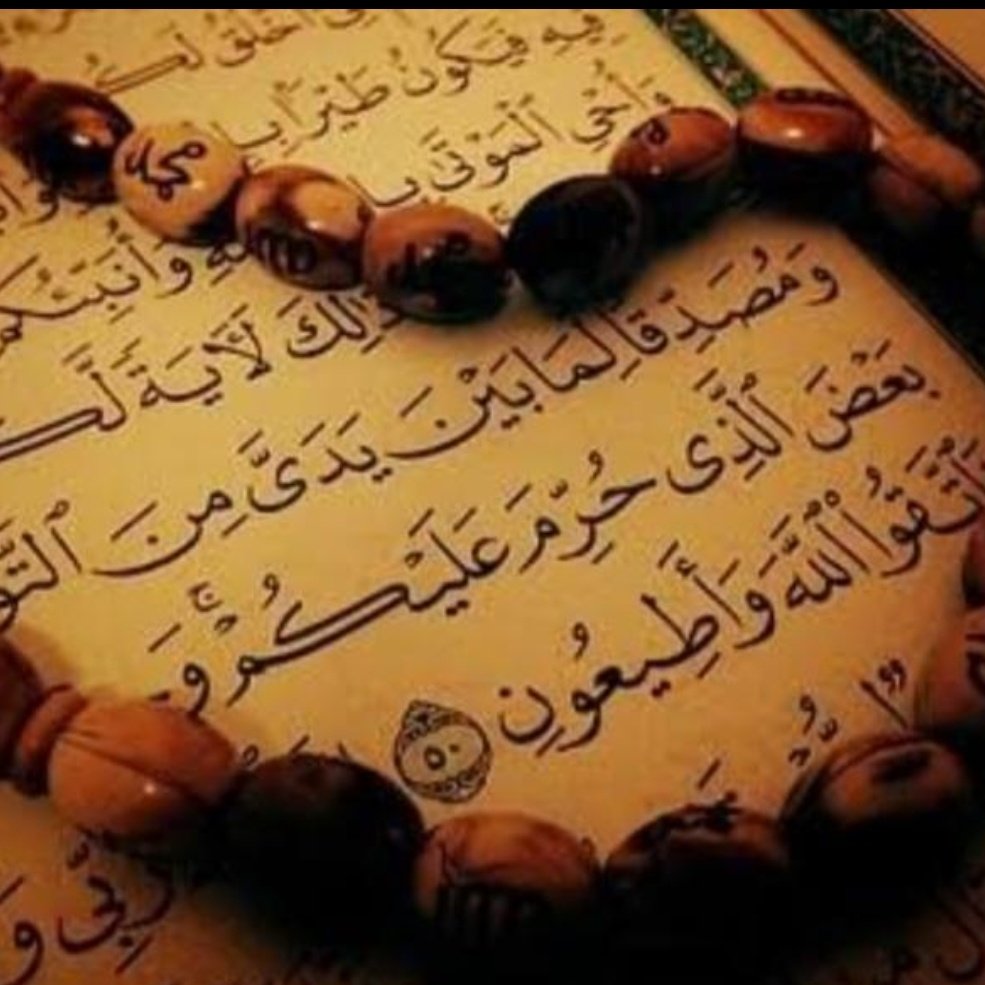 أَخْلُقُ لَكُ
فِيهِ فَيَكُونُ طَيْرًا
وَأُحْىِ ٱلْمَوْتَىٰ
محمد
وَأُنَبِّئُكُم
ذَٰلِكَ لَأٓيَةً لَّكُ
وَمُصَدِّقًا لِّمَا بَيْنَ يَدَىَّ مِنَ ٱلتَّوْ
بَعْضَ ٱلَّذِى حُرِّمَ عَلَيْكُمْ ۚ وَ
فَٱتَّقُوا۟ ٱللَّهَ وَأَطِيعُونِ ٥٠
رَبِّى وَ